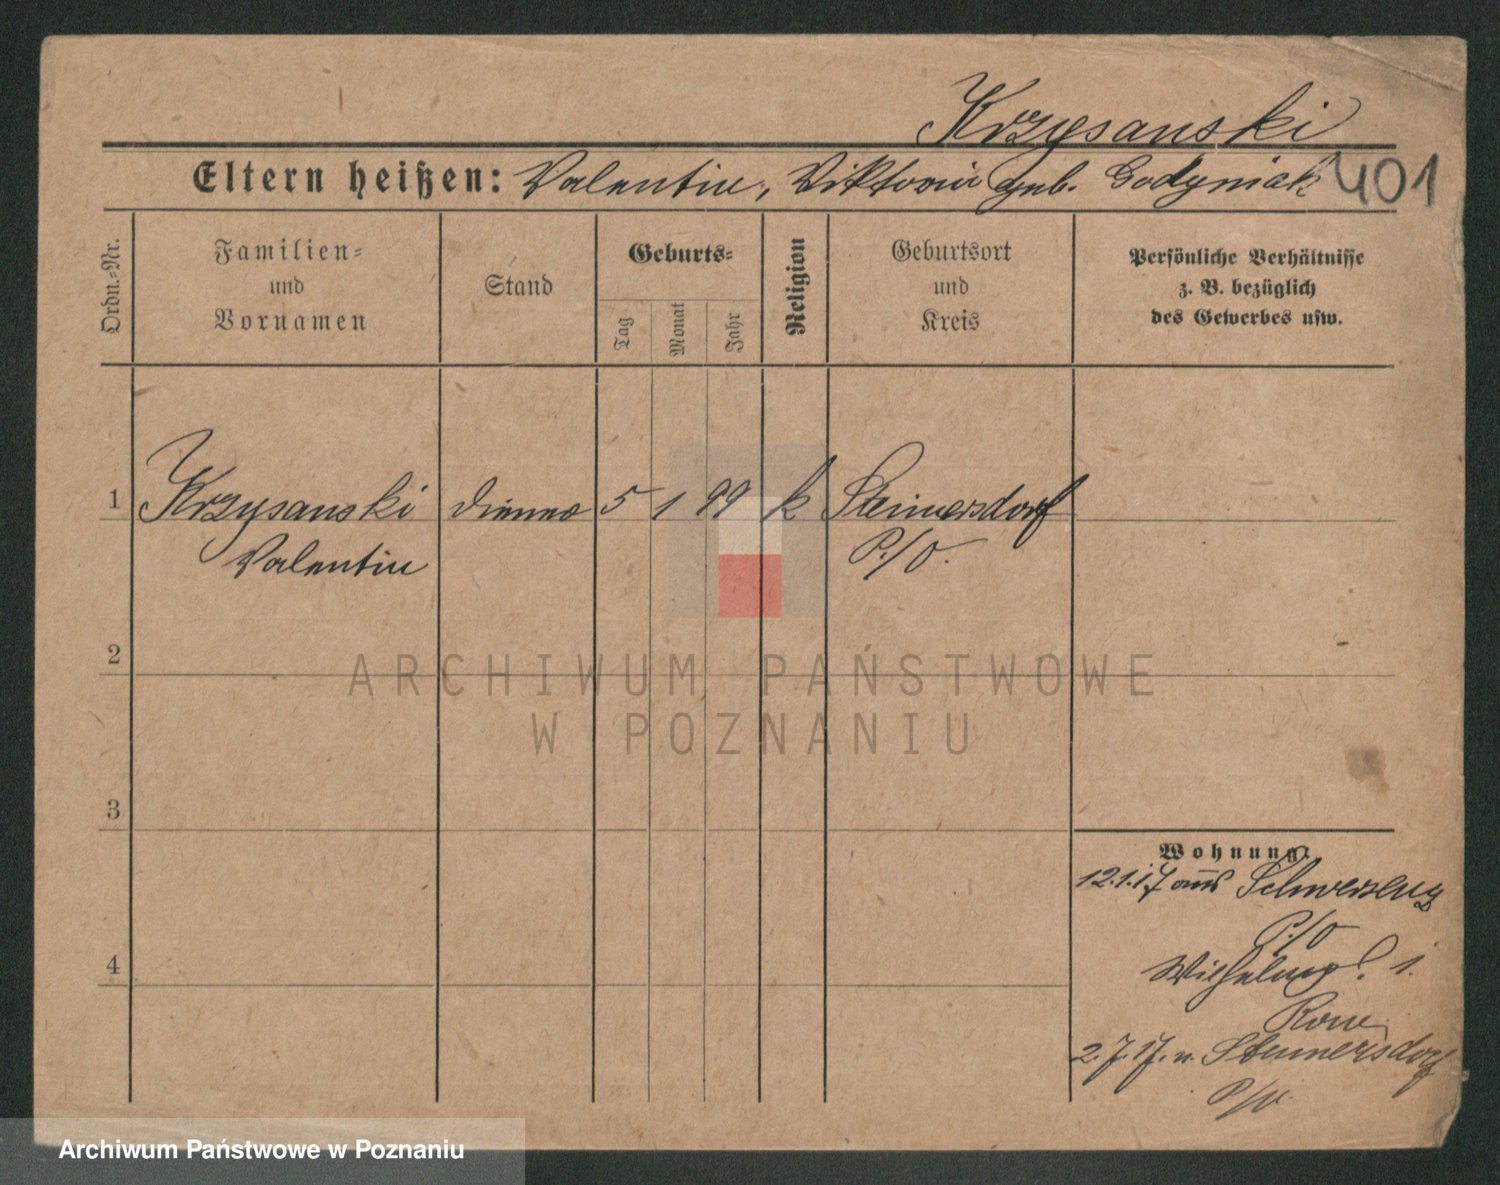 Krzysanski
Eltern heißen: Valentin, Viktoria geb. Godyniak
401
Ordn.-Nr.
Familien-
und
Vornamen
Stand
Geburts-
Tag
Monat
Jahr
Religion
Geburtsort
und
Kreis
Persönliche Verhältnisse
z. B. bezüglich
des Gewerbes usw.
1 Krzysanski Diener 5 1 99 k Steinersdorf
Valentin P./O.
2
ARCHIWUM PAŃSTWOWE
W POZNANIU
3
Wohnung.
12.1.17 aus Schwersenz
P./O
4
Wilhelmpl. 1.
2.7.17. n. Steinersdorf
P/O.
Archiwum Państwowe w Poznaniu